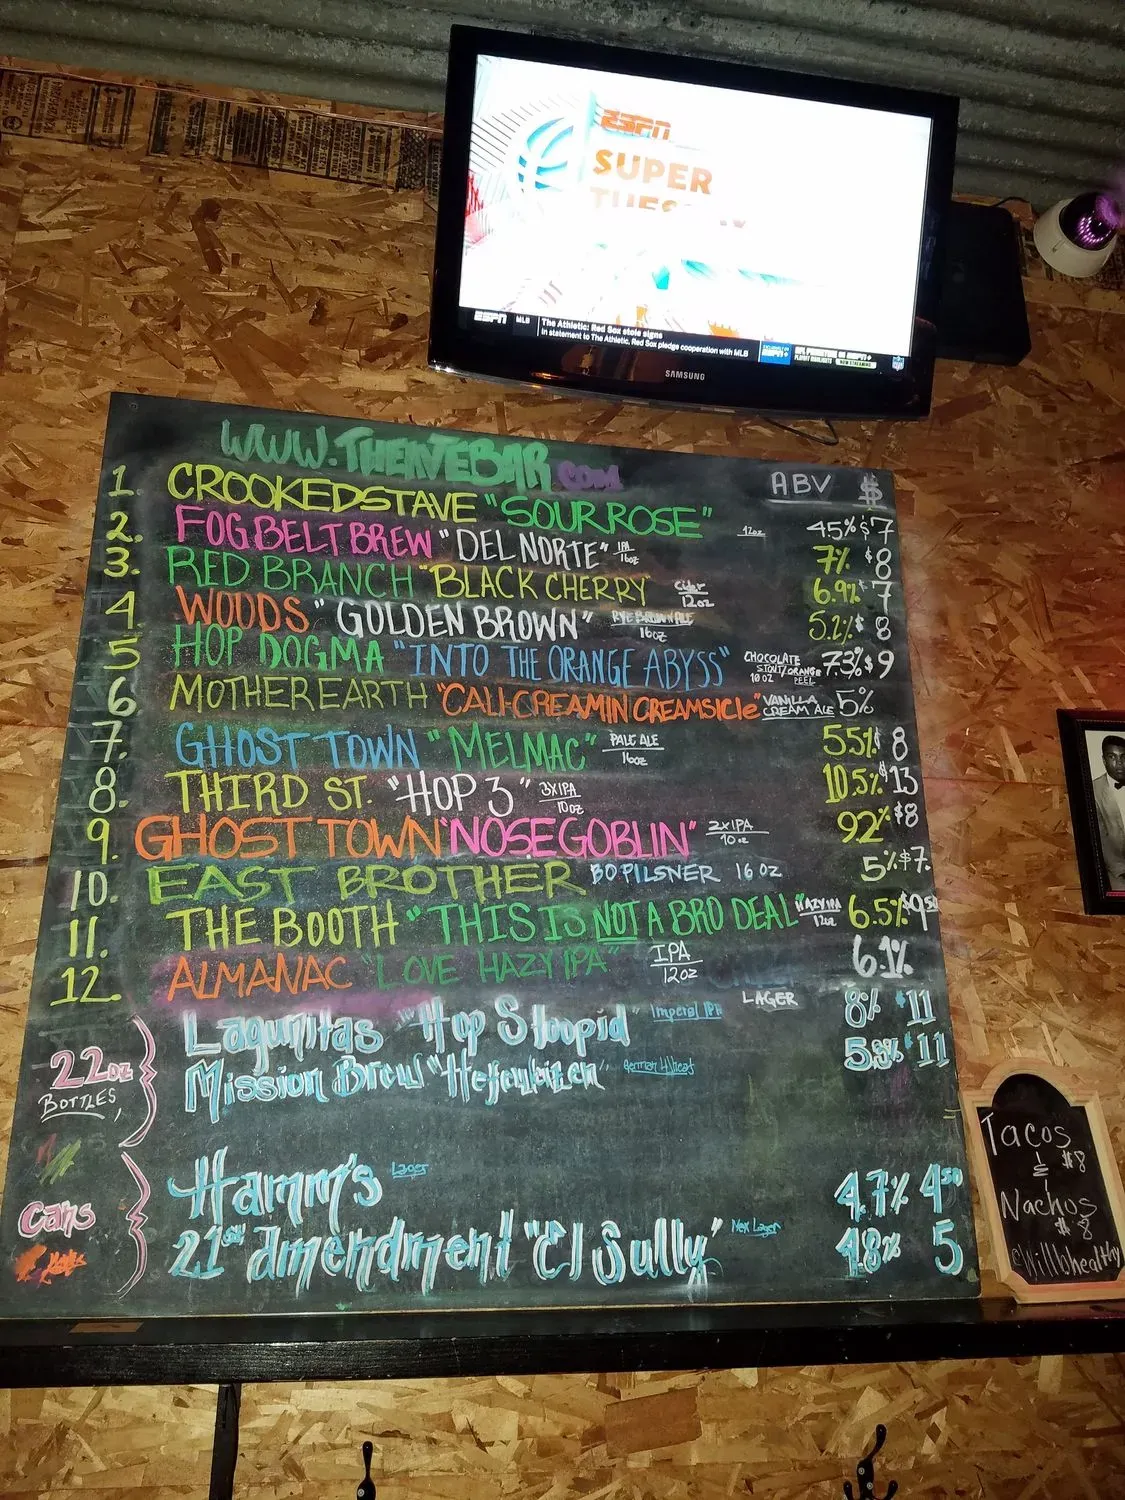 ESPN
SUPER
ESPN MLB The Athletic: Red Sox stole signs
In statement to The Athletic, Red Sox pledge cooperation with MLB
SAMSUNG
ABV $
1. CROOKEDSTAVE "SOUR ROSE" 12oz 45% $7
2. FOGBELT BREW "DEL NORTE" IPA 16oz 7% $8
3. RED BRANCH "BLACK CHERRY Cider 12oz 6.9% 7
4. WOODS "GOLDEN BROWN" RYE BROWN ALE 16oz 5.2% $8
5 HOP DOGMA "INTO THE ORANGE ABYSS" CHOCOLATE STOUT/ORANGE PEEL 10oz 7.3% $9
6 MOTHER EARTH "CALI-CREAMIN CREAMSICLE" VANILLA CREAM ALE 5%
7. GHOST TOWN "MELMAC" PALE ALE 16oz 8
8. THIRD ST. "HOP 3" 3XIPA 10oz 10.5% $13
9. GHOST TOWN "NOSEGOBLIN" 2XIPA 10oz 92% $8
10. EAST BROTHER BO PILSNER 16 OZ 5% $7.
11. THE BOOTH "THIS IS NOT A BRO DEAL" HAZY IPA 12oz 6.5% $9.50
12. ALMANAC "LOVE HAZY IPA" IPA 12OZ 6.1%
LAGER
22oz BOTTLES,
Lagunitas "Hop Stoopid" Imperial IPA 8% $11
Mission Brew "Hefeweizen German Wheat 11
Cans
Hamm's Lager 4.7% 4.50
21st amendment "El Sully" Mex Lager 4.8% 5
Tacos
& $8
Nachos
$8
@Willbhealthy